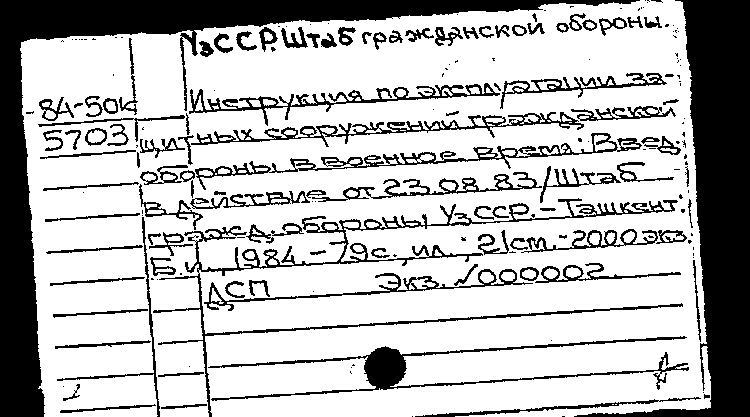 УзССР. Штаб гражданской обороны.
84-50к
5703
Инструкция по эксплуатации за-
щитных сооружений гражданской
обороны в военное время: Введ.
в действие от 23.08.83/Штаб
гражд. обороны УзССР. - Ташкент:
Б.и., 1984. - 79с., ил.; 21см. - 2000 экз.
ДСП Экз. √000002.